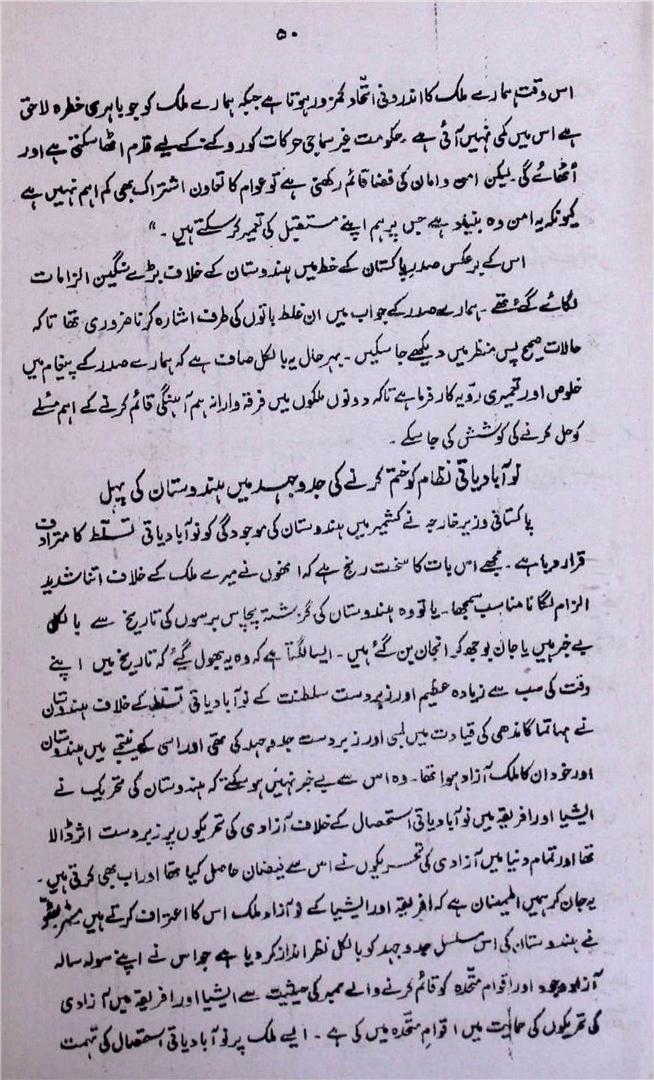 ۵۰
اس وقت ہمارے ملک کا اندرونی اتحّاد کمزور ہوتا ہے جبکہ ہمارے ملک کو جو باہری خطرہ لاحق
ہے اس میں کمی نہیں آئی ہے ۔ حکومت غیر سماجی حرکات کو روکنے کے لیے قدم اٹھا سکتی ہے اور
اُٹھائے گی۔ لیکن امن و امان کی فضا قائم رکھنی ہے تو عوام کا تعاون اشتراک بھی کم اہم نہیں ہے
کیونکہ یہ امن وہ بنیاد ہے جس پر ہم اپنے مستقبل کی تعمیر کر سکتے ہیں ۔ "
اس کے برعکس صدر پاکستان کے خط میں ہندوستان کے خلاف بڑے سنگین الزامات
لگائے گئے تھے ۔ ہمارے صدر کے جواب میں ان غلط باتوں کی طرف اشارہ کرنا ضروری تھا تاکہ
حالات صحیح پس منظر میں دیکھے جا سکیں ۔ بہر حال یہ بالکل صاف ہے کہ ہمارے صدر کے پیغام میں
خلوص اور تعمیری رویّہ کارفرما ہے تاکہ دونوں ملکوں میں فرقہ وارانہ ہم آہنگی قائم کرنے کے اہم مسئلے
کو حل کرنے کی کوشش کی جا سکے ۔
نو آبادیاتی نظام کو ختم کرنے کی جدوجہد میں ہندوستان کی پہل
پاکستانی وزیر خارجہ نے کشمیر میں ہندوستان کی موجودگی کو نو آبادیاتی تسلّط کا مترادف
قرار دیا ہے ۔ مجھے اس بات کا سخت رنج ہے کہ انھوں نے میرے ملک کے خلاف اتنا شدید
الزام لگانا مناسب سمجھا ۔ یا تو وہ ہندوستان کی گزشتہ پچاس برسوں کی تاریخ سے بالکل
بے خبر ہیں یا جان بوجھ کر انجان بن گئے ہیں ۔ ایسا لگتا ہے کہ وہ یہ بھول گئے کہ تاریخ میں اپنے
وقت کی سب سے زیادہ عظیم اور زبردست سلطنت کے نو آبادیاتی تسلّط کے خلاف ہندوستان
نے مہاتما گاندھی کی قیادت میں لمبی اور زبردست جدوجہد کی تھی اور اسی کے نتیجے میں ہندوستان
اور خود ان کا ملک آزاد ہوا تھا ۔ وہ اس سے بے خبر نہیں ہو سکتے کہ ہندوستان کی تحریک نے
ایشیا اور افریقہ میں نو آبادیاتی استحصال کے خلاف آزادی کی تحریکوں پر زبردست اثر ڈالا
تھا اور تمام دنیا میں آزادی کی تحریکوں نے اس سے فیضان حاصل کیا تھا اور اب بھی کرتی ہیں ۔
یہ جان کر ہمیں اطمینان ہے کہ افریقہ اور ایشیا کے نو آزاد ملک اس کا اعتراف کرتے ہیں مسٹر بھٹو
نے ہندوستان کی اس مسلسل جدوجہد کو بالکل نظر انداز کر دیا ہے جو اس نے اپنے سولہ سالہ
آزاد وجود اور اقوام متحّدہ کو قائم کرنے والے ممبر کی حیثیت سے ایشیا اور افریقہ میں آزادی
کی تحریکوں کی حمایت میں اقوامِ متحّدہ میں کی ہے ۔ ایسے ملک پر نو آبادیاتی استحصال کی تہمت